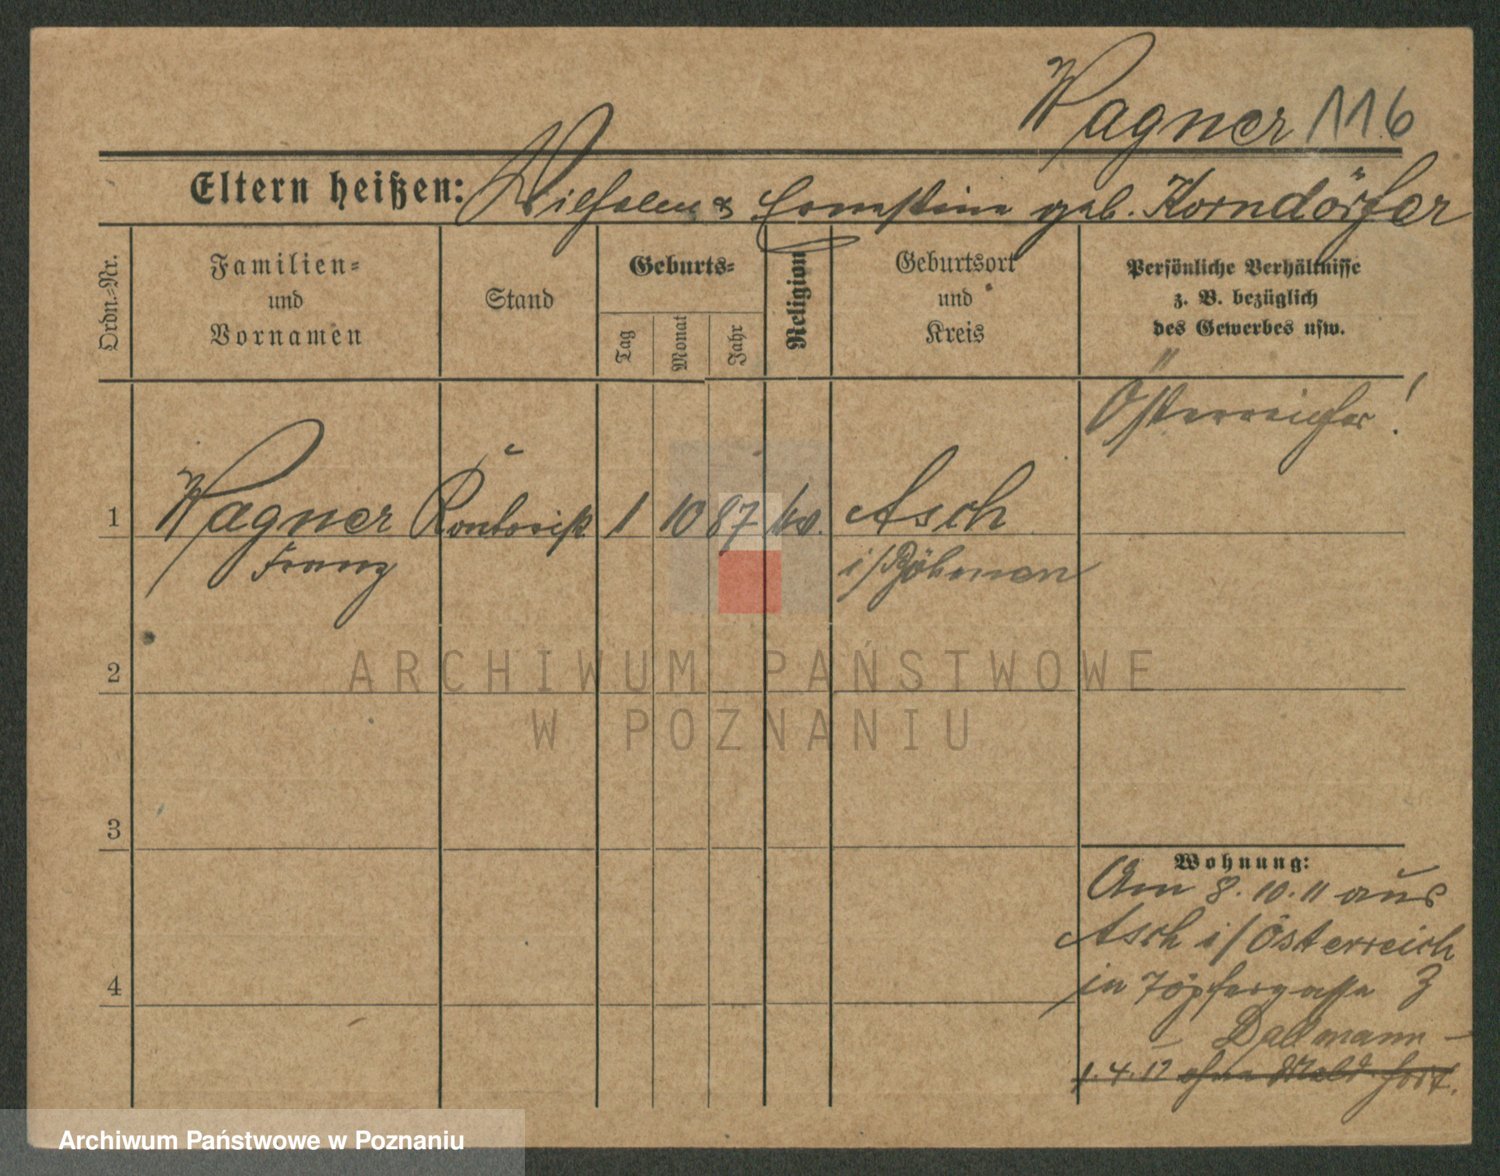 Wagner 116
Eltern heißen: Wilhelm & Ernestine geb. Korndörfer
Ordn.-Nr.
Familien-
und
Vornamen
Stand
Geburts-
Tag
Monat
Jahr
Religion
Geburtsort
und
Kreis
Persönliche Verhältnisse
z. B. bezüglich
des Gewerbes usw.
Österreicher!
1 Wagner Kontorist 1 10 87 ev. Asch
Franz i/Böhmen
2
3
4
Wohnung:
Am 8.10.11 aus
Asch i/Österreich
in Töpfergasse 3
Dallmann
1.4.12 ohne Meld. fort.
ARCHIWUM PAŃSTWOWE
W POZNANIU
Archiwum Państwowe w Poznaniu